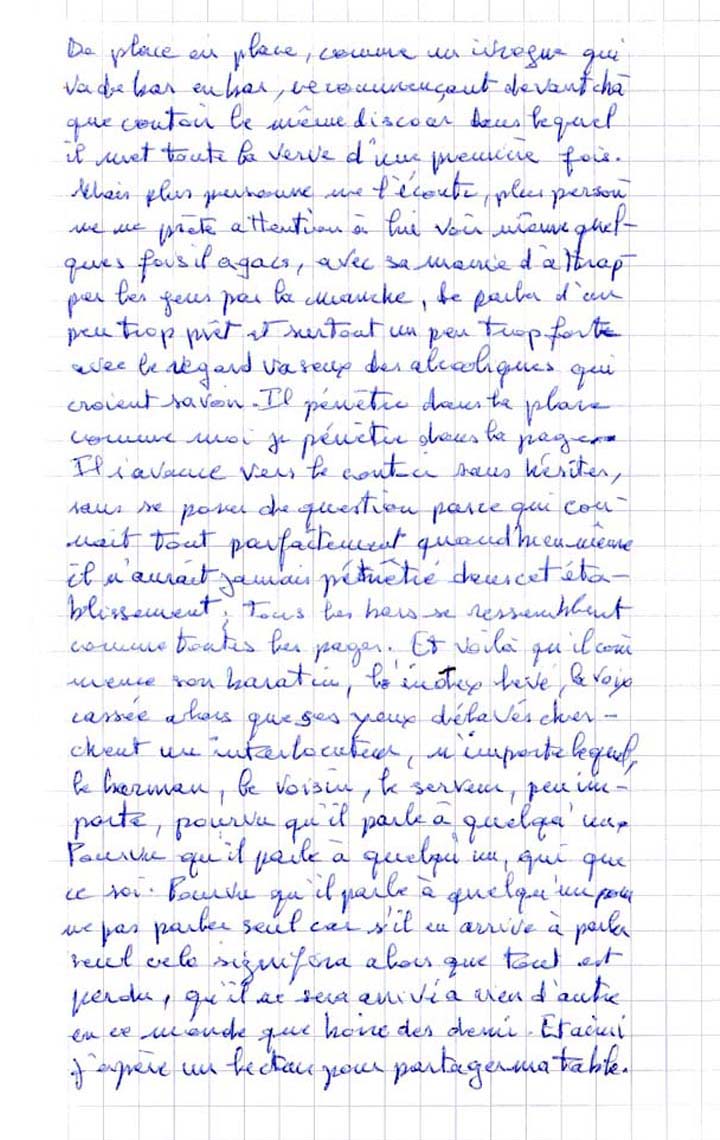 De place en place, comme un ivrogne qui
va de bar en bar, recommençant devant cha
que contoir le même discour dans lequel
il met toute la verve d'une première fois.
Mais plus personne ne l'écoute, plus person
ne ne prète attention à lui voir même quel-
ques fois il agace, avec sa manie d'attrap
per les gens par la manche, de parler d'un
peu trop prêt et surtout un peu trop forte
avec le regard vaseux des alcooliques qui
croient savoir. Il pénètre dans la place
comme moi je pénètre dans la page
Il s'avance vers le contoir sans hésiter,
sans se poser de question parce qui con-
nait tout parfaitement quand bien même
il n'aurait jamais pénétré dans cet éta-
blissement ; Tous les bars se ressemblent
comme toutes les pages. Et voilà qu'il com
mence son baratin, le index levé, la voix
cassée alors que ses yeux délavés cher-
chent un interlocuteur, n'importe lequel,
le barman, le voisin, le serveur, peu im-
porte, pourvu qu'il parle à quelqu'un.
Pourvu qu'il parle à quelqu'un, qui que
ce soi. Pourvu qu'il parle à quelqu'un pour
ne pas parler seul car s'il en arrive à parler
seul cela signifira alors que tout est
perdu, qu'il ne sera arrivé a rien d'autre
en ce monde que boire des demi. Et ainsi
j'espère un lecteur pour partager ma table.